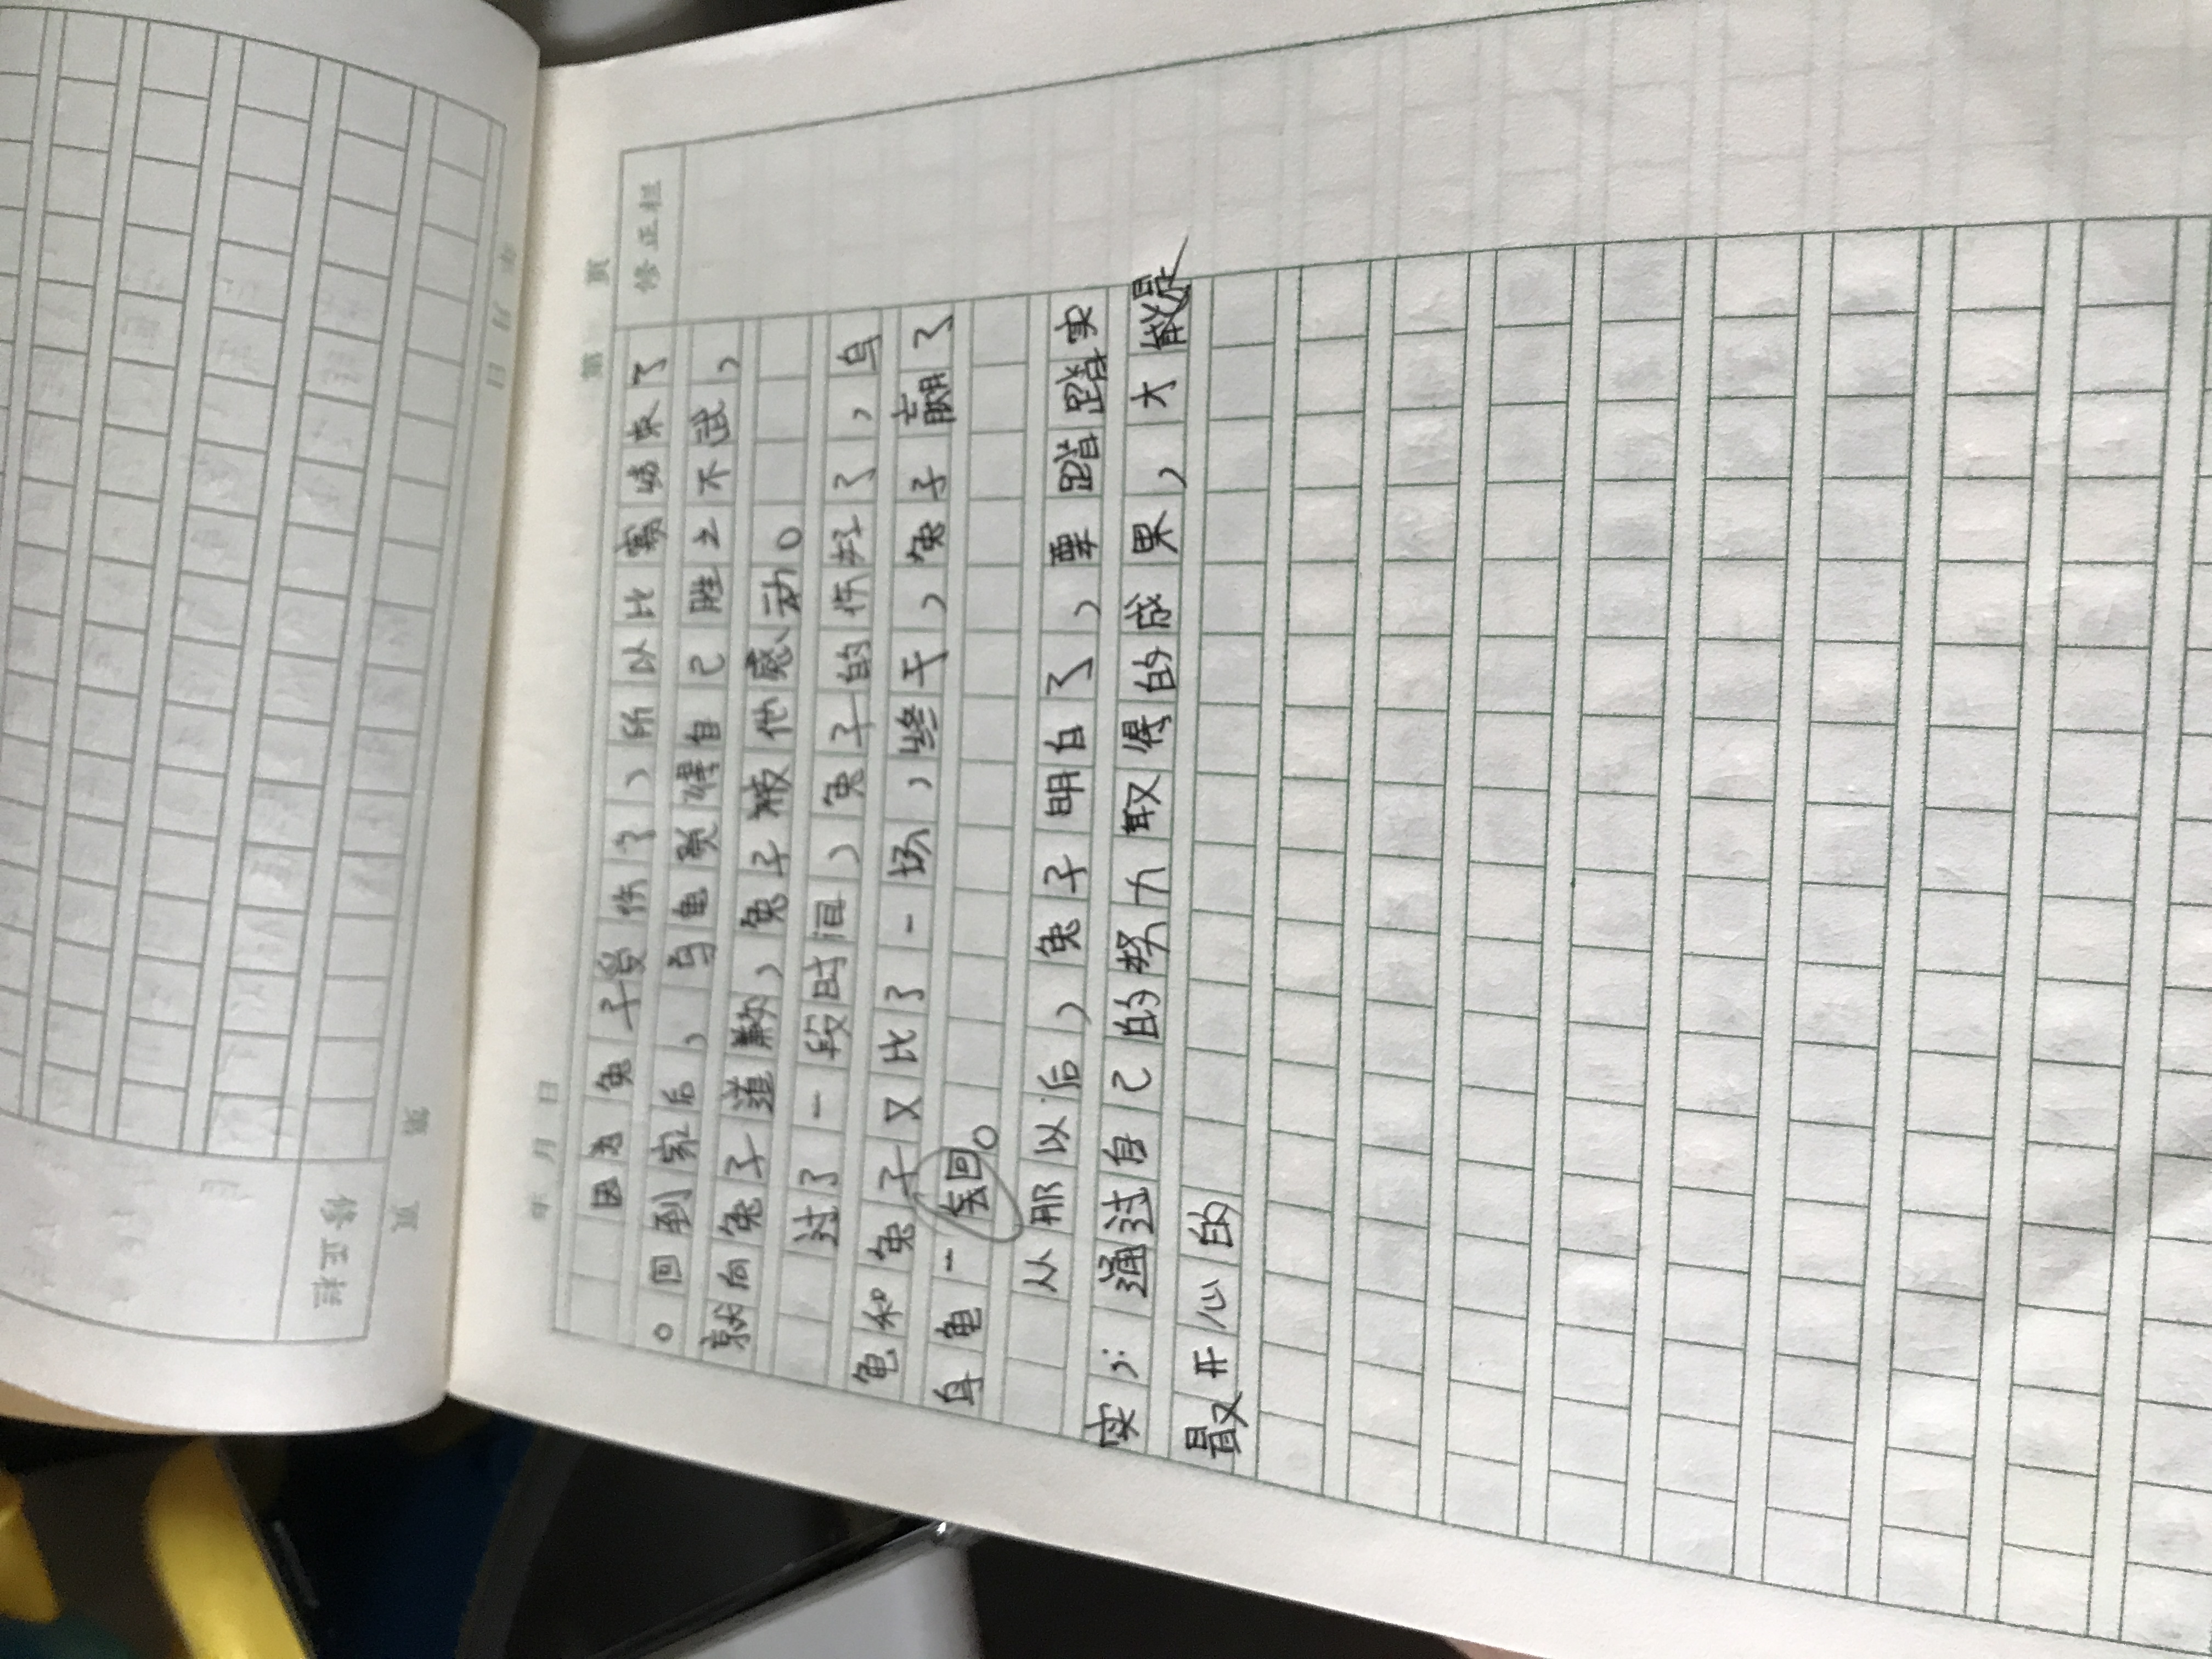 年 月 日
第 页
修正栏
因为兔子受伤了,所以比赛结束了
。回到家后,乌龟觉得自己胜之不武,
就向兔子道歉,兔子被他感动。
过了一段时间,兔子的伤好了,乌
龟和兔子又比了一场,终于,兔子赢了
乌龟一回。
从那以后,兔子明白了,要踏踏实
实;通过自己的努力取得的成果,才是
最开心的
年 月 日
第 页
修正栏